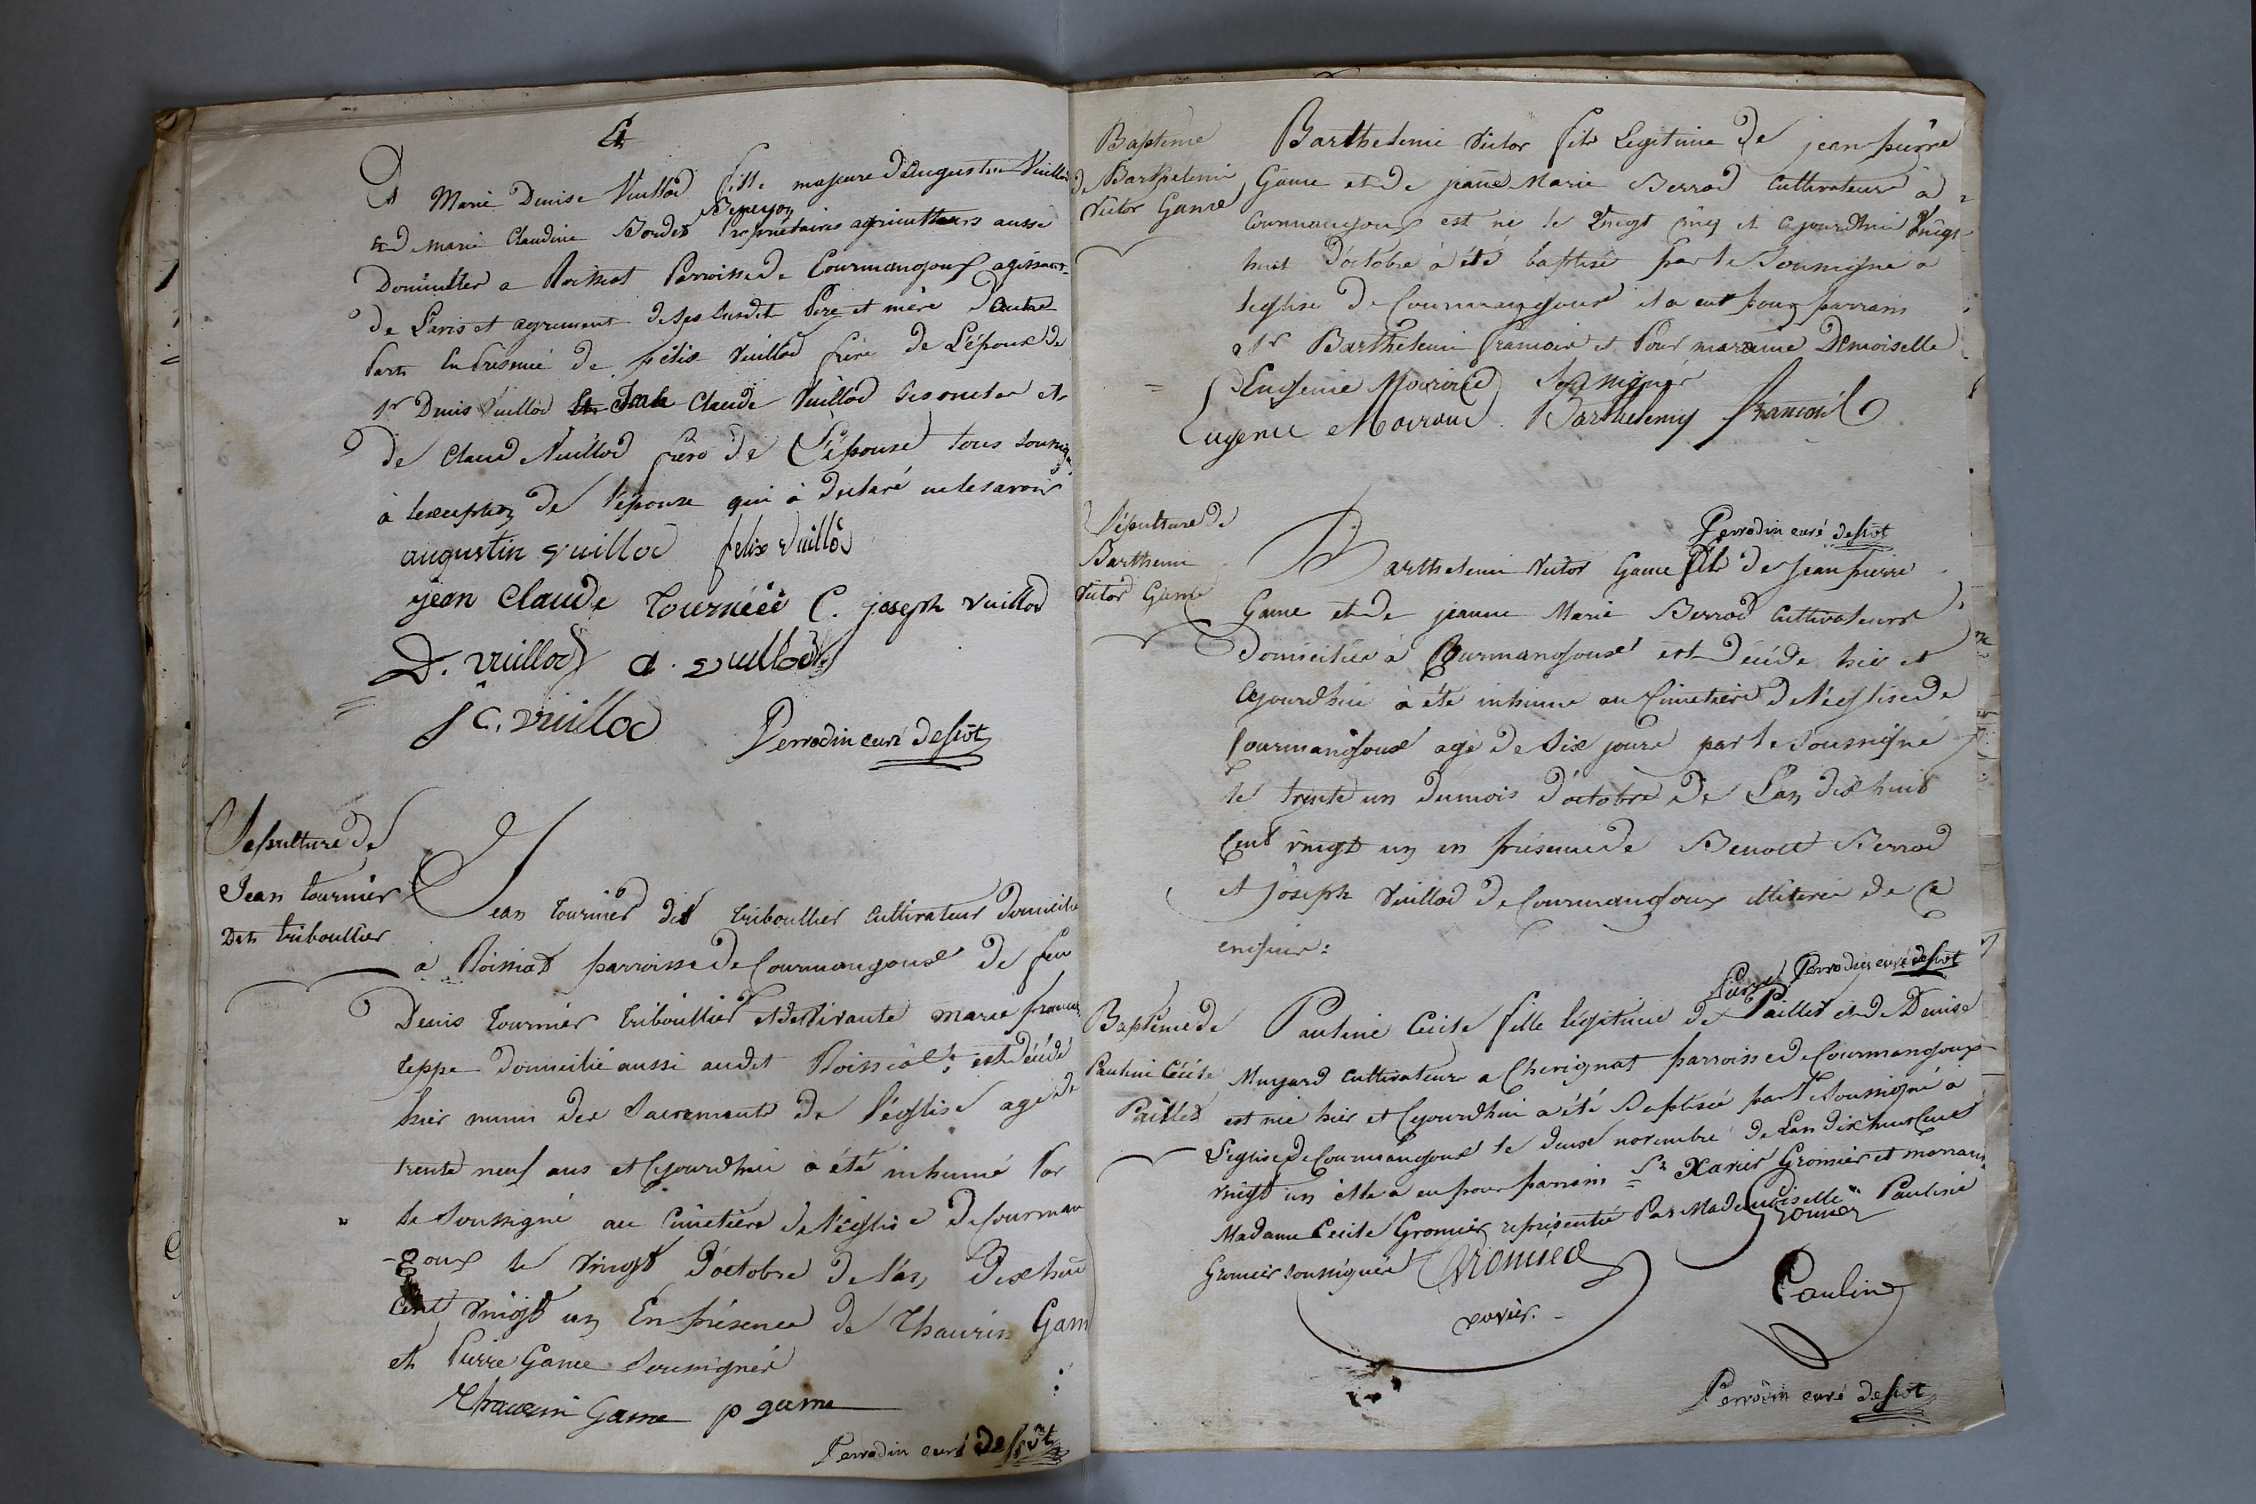 Et
Marie Denise Vuillod fille majeure d'Augustin Vuillod
Et de marie Claudine Boudet propriétaires agriculteurs aussi
Domicilier a Roissiat Parroisse de Courmangoux agissant
de L'avis et agrement de ses susdit Pere et mère D'autre
Part En Présence de félix Vuillod frère de L'époux de
Sr Denis Vuillod Claude Vuillod ses oncles et
de Claud Vuillod frère de L'épouse tous soussignés
à l'exception de l'épouse qui à declaré ne le savoir
augustin vuillod felix vuillod
jean Claude tournier C. joseph vuillod
D. vuillod a. vuillod
J C. vuillod Perrodin curé desservt
Sepulture de
Jean tournier
Dit triboullier
Jean tournier dit triboullier cultivateur domicilié
a Roissiat parroisse de Courmangoux de feu
Denis tournier triboullier et de vivante marie francoise
teppe domicilié aussi audit Roissiat est décédé
hier muni des Sacrements de l'église agé de
trente neuf ans et cejourdhui à été inhumé Par
le Soussigné au Cimetière de l'église de Courman
-goux le vingt d'octobre de l'an Dix huit
Cent vingt un En présence de Thaurin Game
et Pierre Game Soussignés
Thaurin Game p game
Perrodin curé desservt
Baptême
de Barthelemi
Victor Game
Barthelemi Victor fils Legitime de jean pierre
Game et de jeanne Marie Berrod Cultivateurs à
Courmangoux est né le vingt cinq et cejourdhui vingt
huit d'octobre à été baptisé par le Soussigné a
leglise de Courmangoux il a eut pour parrain
Sr Barthelemi francois et Pour maraine Demoiselle
Eugenie Moirond Soussignés
Eugenie Moiroud Barthelemy francois
Perrodin curé desservt
Sépulture de
Barthemi
Victor Game
Barthelemi Victor Game fils de Jean pierre
Game et de jeanne Marie Berrod Cultivateurs
Domiciliés à Courmangoux est décédé hier et
Cejourdhui à été inhumé au Cimetière de l'église de
Courmangoux agé de six jours par le Soussigné
le trente un du mois d'octobre de L'an dix huit
Cent vingt un en présence de Benoit Berrod
et joseph Vuillod de Courmangoux illiterés de ce
enquis:
Perrodin curé desservt
Baptême de
Pauline Cécile
Paillet
Pauline Cecile fille légitime de Pierre Paillet et de Denise
Muyard cultivateurs a Chevignat parroisse de Courmangoux
est née hier et cejourdhui a été Baptisée par le Soussigné à
L'eglise de Courmangoux le deux novembre de Lan dix huit Cent
vingt un elle a eu pour parrain Sr Xavier Gromier et maraine
Madame Cecile Gromier représentée Par Mademoiselle Pauline
Gromier soussignés Gromier Gromier
xavier. Pauline
Perrodin curé desservt